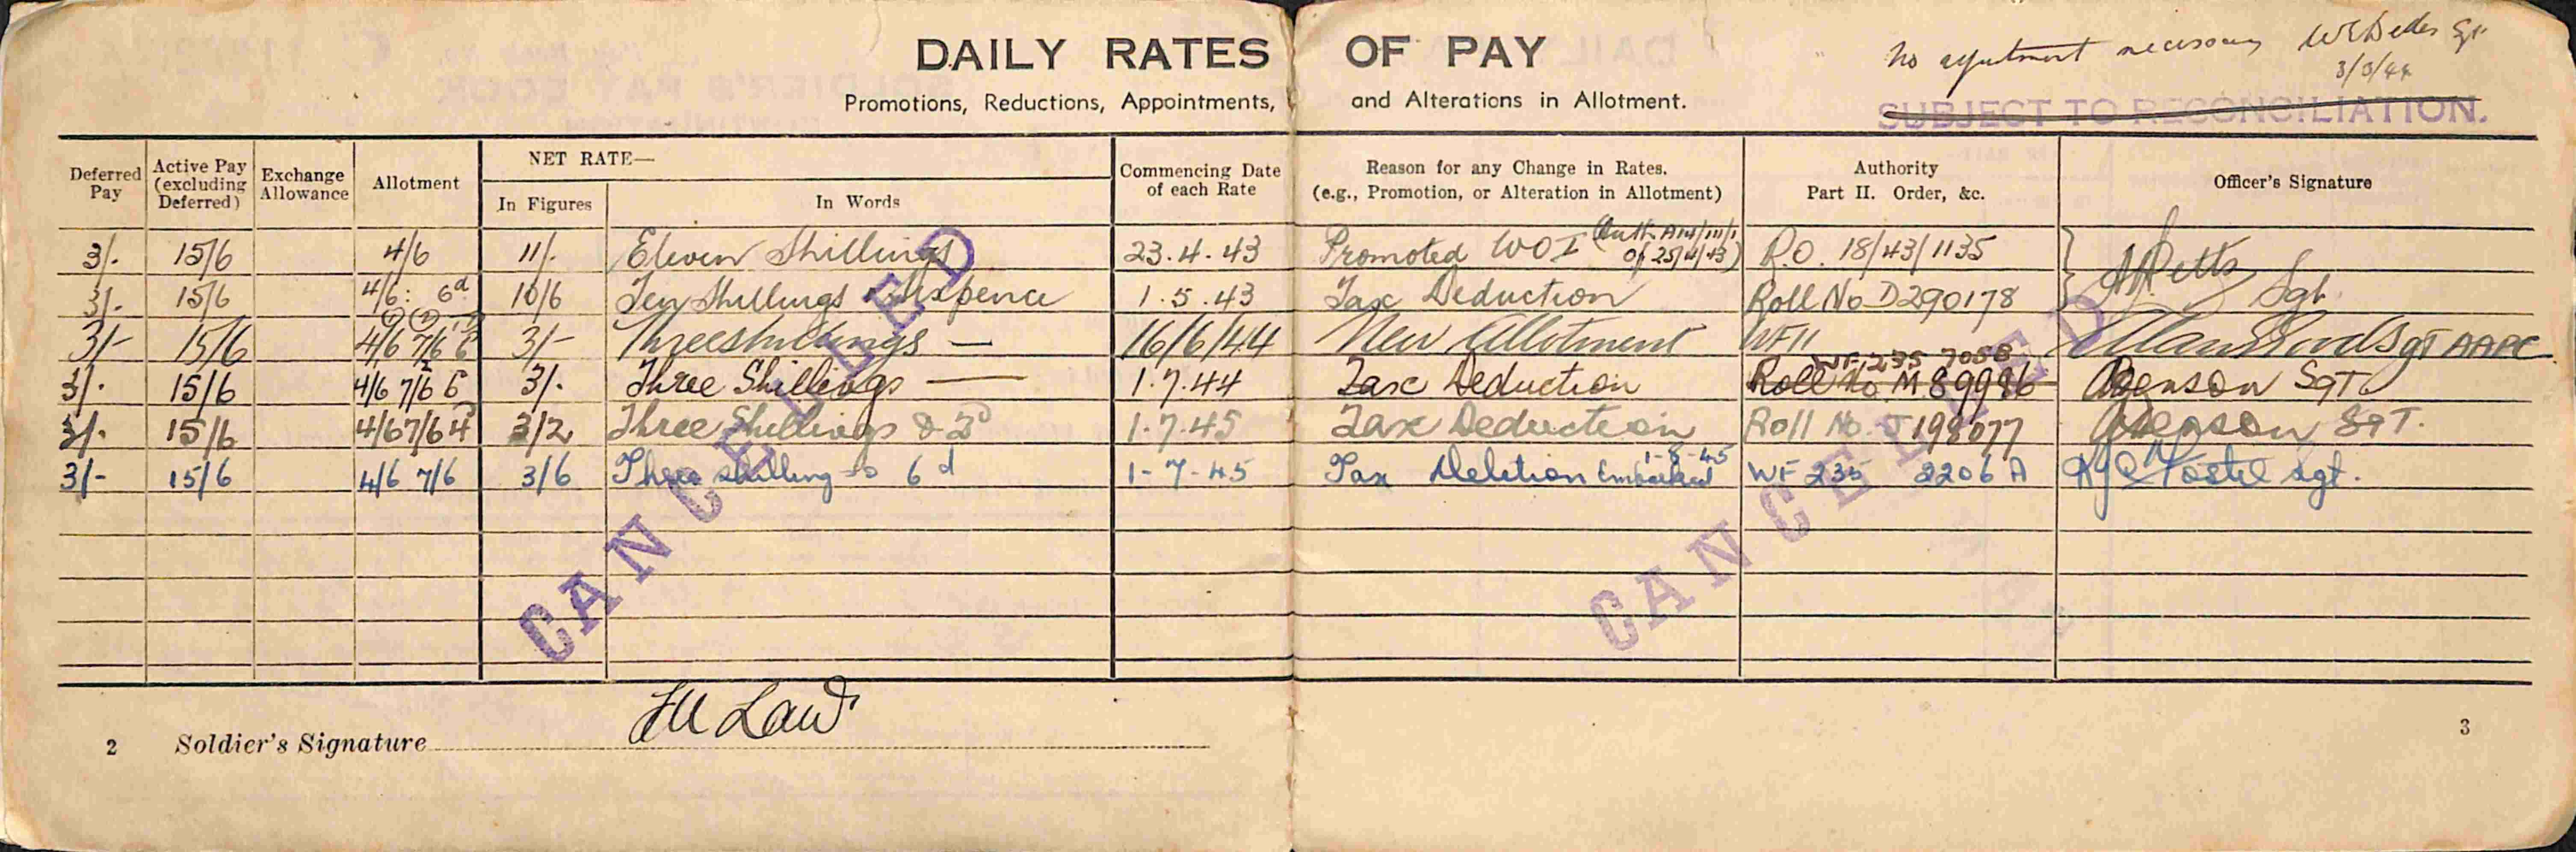 DAILY RATES OF PAY
Promotions, Reductions, Appointments, and Alterations in Allotment.
No necessary Sgt
3/3/44
SUBJECT TO RECONCILIATION.
Deferred Pay
Active Pay (excluding Deferred)
Exchange Allowance
Allotment
NET RATE—
In Figures
In Words
Commencing Date of each Rate
Reason for any Change in Rates. (e.g., Promotion, or Alteration in Allotment)
Authority Part II. Order, &c.
Officer's Signature
3/. 15/6 4/6 11/. Eleven Shillings 23.4.43 Promoted WOI (Auth. of 25/4/43) R.O. 18/43/1135
3/. 15/6 4/6: 6d 10/6 Ten Shillings Sixpence 1.5.43 Tax Deduction Roll No D290178 Sgt
3/- 15/6 4/6 7/6 6 3/- Threeshillings — 16/6/44 New Allotment WF11 Sgt AAPC
WF 235 705B
3/. 15/6 4/6 7/6 6 3/. Three Shillings — 1.7.44 Tax Deduction Roll No M 89986 Benson SGT
3/. 15/6 4/6 7/6 4 3/2 Three Shillings & 2d 1.7.45 Tax Deduction Roll No. J198077 Benson SGT.
3/- 15/6 4/6 7/6 3/6 Three shillings 6d 1-7-45 Tax Deletion Embarked 1-8-45 WF 235 2206 A sgt.
CANCELLED
CANCELLED
2 Soldier's Signature Law
3